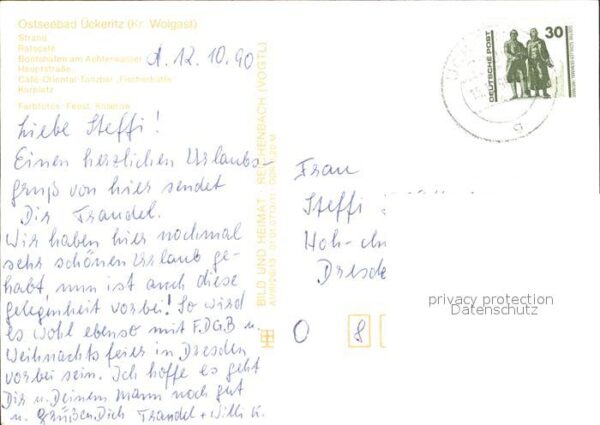 Ostseebad Ückeritz (Kr. Wolgast)
Strand
Ratscafé
Bootshafen am Achterwasser
Hauptstraße
Café-Oriental-Tanzbar „Fischerhütte“
Kurplatz
Farbfotos: Feust, Koserow
d. 12.10.90
Liebe Steffi!
Einen herzlichen Urlaubs-
gruß von hier sendet
Dir Traudel.
Wir haben hier nochmal
sehr schönen Urlaub ge-
habt nun ist auch diese
gelegenheit vorbei! So wird
es wohl ebenso mit F.D.G.B u.
Weihnachtsfeier in Dresden
vorbei sein. Ich hoffe es geht
Dir u. Deinem Mann noch gut
u. grüßen Dich Traudel + Willi K.
BILD UND HEIMAT REICHENBACH (VOGTL)
DEUTSCHE POST
30
Frau
Steffi
Hoh-
Dresde
O 8
privacy protection
Datenschutz